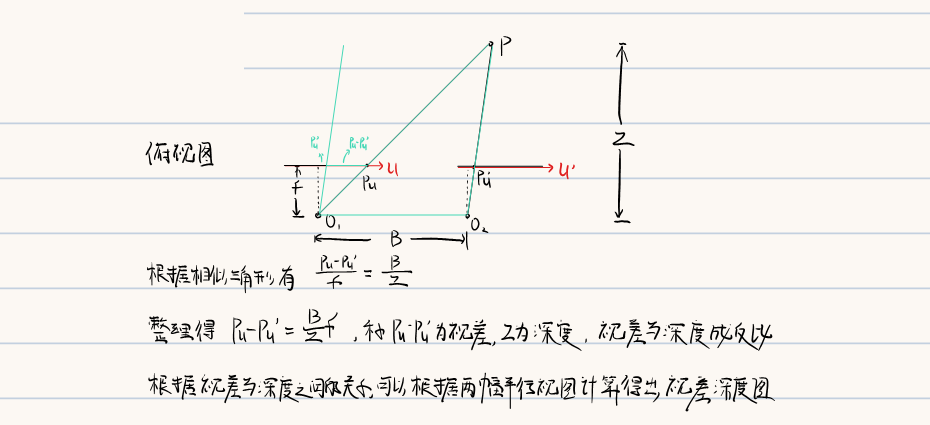 P
Z
俯视图
Pu'
Pu-Pu'
f
Pu
u
Pu'
u'
O₁
O₂
B
根据相似三角形,有 (Pu-Pu')/f = B/Z
整理得 Pu-Pu' = B/Z f , 称 Pu-Pu' 为视差, Z为深度, 视差与深度成反比
根据视差与深度之间的关系,可以根据两幅平行视图计算得出视差深度图